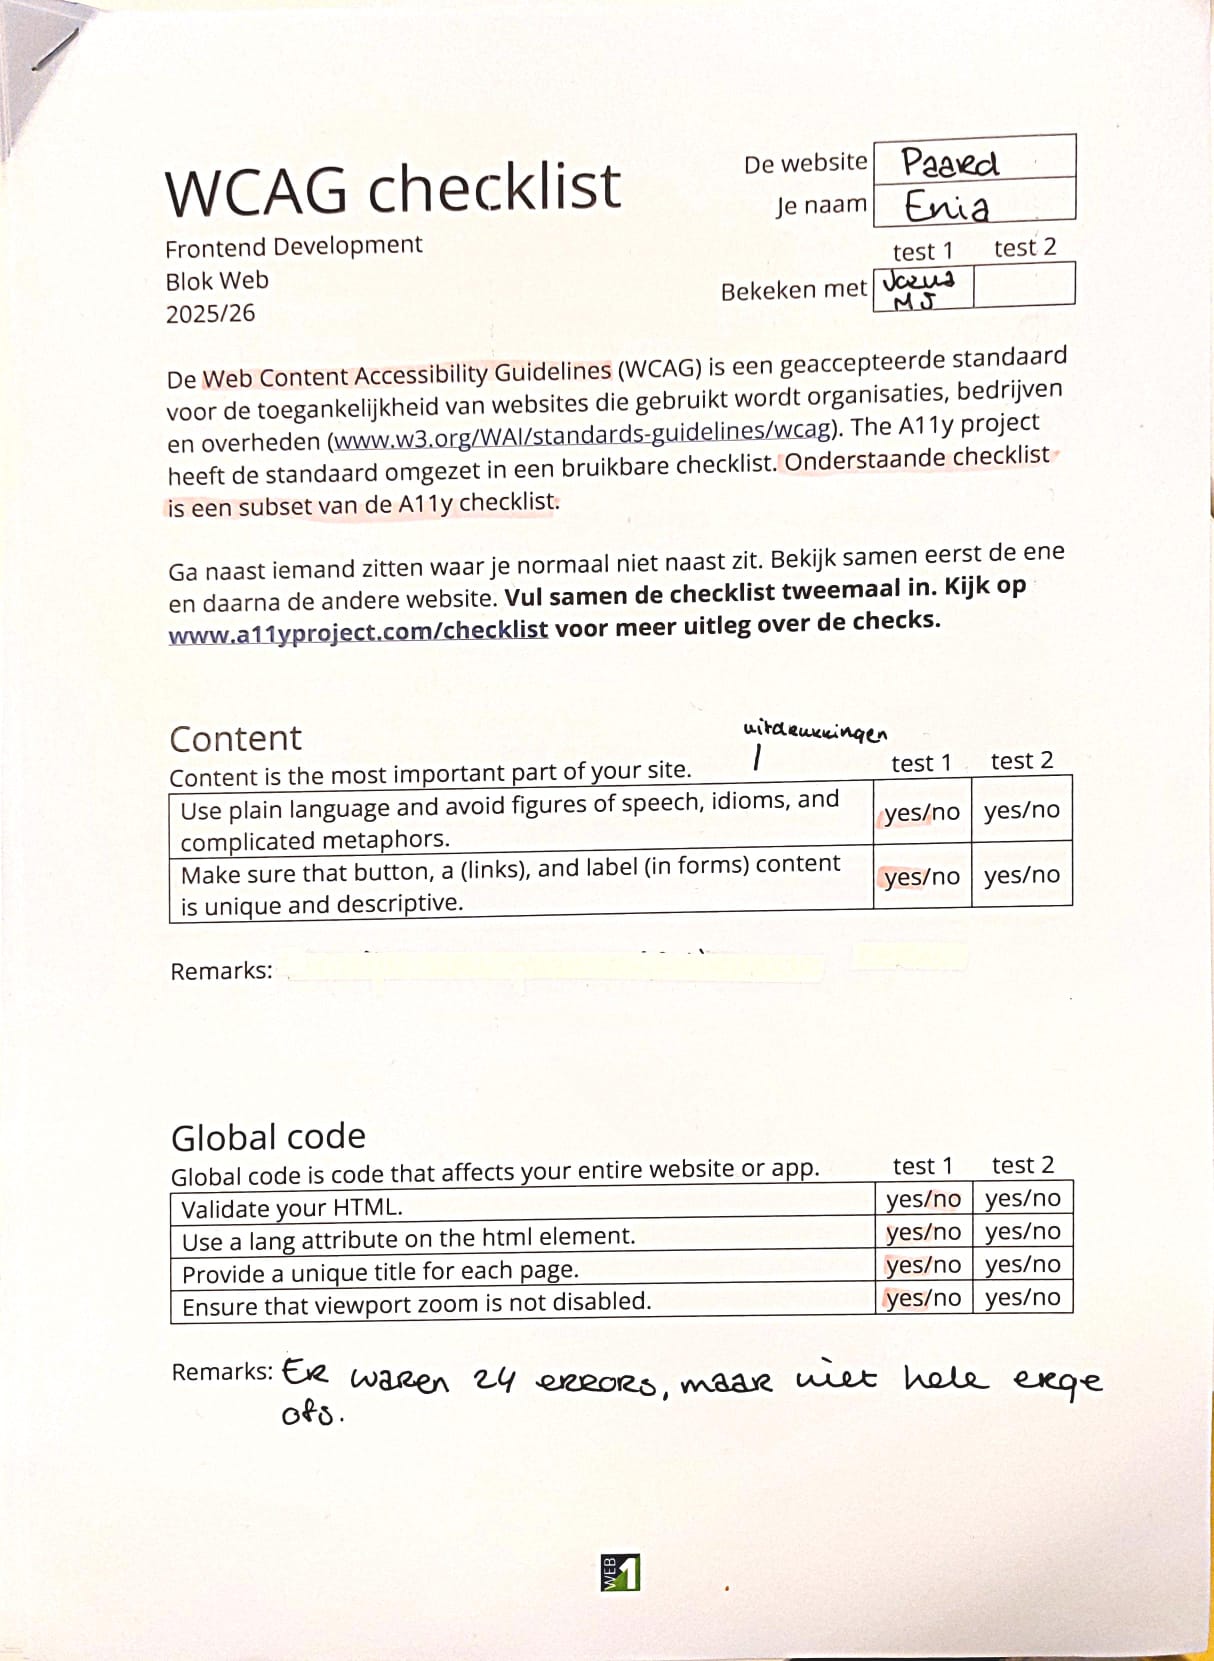 WCAG checklist
Frontend Development
Blok Web
2025/26
De website Paard
Je naam Enia
test 1 test 2
Bekeken met MJ
De Web Content Accessibility Guidelines (WCAG) is een geaccepteerde standaard
voor de toegankelijkheid van websites die gebruikt wordt organisaties, bedrijven
en overheden (www.w3.org/WAI/standards-guidelines/wcag). The A11y project
heeft de standaard omgezet in een bruikbare checklist. Onderstaande checklist
is een subset van de A11y checklist.
Ga naast iemand zitten waar je normaal niet naast zit. Bekijk samen eerst de ene
en daarna de andere website. Vul samen de checklist tweemaal in. Kijk op
www.a11yproject.com/checklist voor meer uitleg over de checks.
Content
uitdrukkingen
Content is the most important part of your site. test 1 test 2
Use plain language and avoid figures of speech, idioms, and
complicated metaphors. yes/no yes/no
Make sure that button, a (links), and label (in forms) content
is unique and descriptive. yes/no yes/no
Remarks:
Global code
Global code is code that affects your entire website or app. test 1 test 2
Validate your HTML. yes/no yes/no
Use a lang attribute on the html element. yes/no yes/no
Provide a unique title for each page. yes/no yes/no
Ensure that viewport zoom is not disabled. yes/no yes/no
Remarks: Er waren 24 errors, maar niet hele erge
ofs.
WEB 1